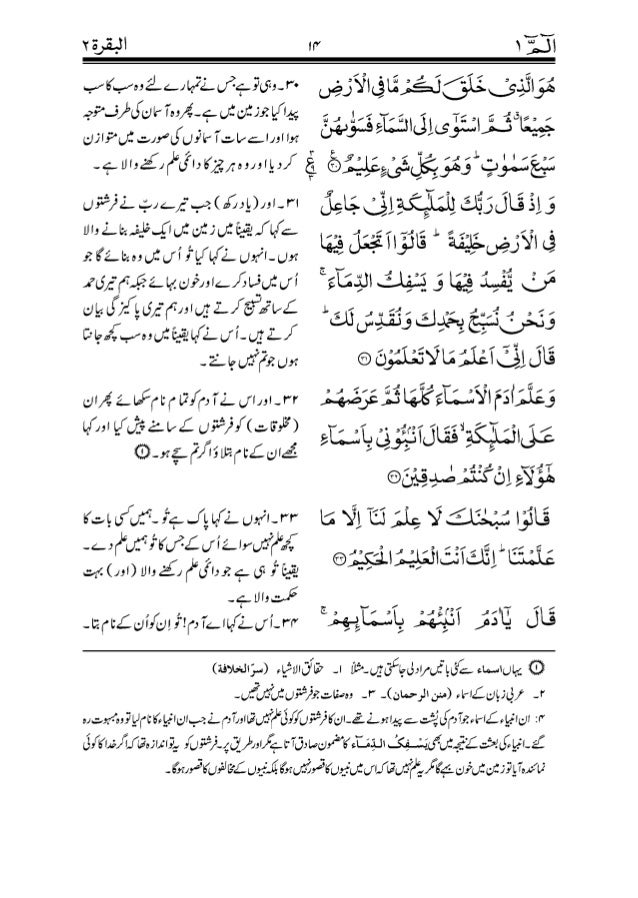 الٓمّٓ ۱
۱۴
البقرة ۲
هُوَ الَّذِىۡ خَلَقَ لَـكُمۡ مَّا فِى الۡاَرۡضِ
جَمِيۡعًا ۙ ثُمَّ اسۡتَوٰٓى اِلَى السَّمَآءِ فَسَوّٰٮهُنَّ
سَبۡعَ سَمٰوٰتٍ ؕ وَهُوَ بِكُلِّ شَىۡءٍ عَلِيۡمٌ ﴿۳۰﴾
وَ اِذۡ قَالَ رَبُّكَ لِلۡمَلٰٓٮِٕكَةِ اِنِّىۡ جَاعِلٌ
فِى الۡاَرۡضِ خَلِيۡفَةً ؕ قَالُوۡٓا اَتَجۡعَلُ فِيۡهَا
مَنۡ يُّفۡسِدُ فِيۡهَا وَ يَسۡفِكُ الدِّمَآءَ ۚ
وَنَحۡنُ نُسَبِّحُ بِحَمۡدِكَ وَنُقَدِّسُ لَكَ ؕ
قَالَ اِنِّىۡٓ اَعۡلَمُ مَا لَا تَعۡلَمُوۡنَ ﴿۳۱﴾
وَعَلَّمَ اٰدَمَ الۡاَسۡمَآءَ كُلَّهَا ثُمَّ عَرَضَهُمۡ
عَلَى الۡمَلٰٓٮِٕكَةِ ۙ فَقَالَ اَنۡۢبِـُٔوۡنِىۡ بِاَسۡمَآءِ
هٰٓؤُلَآءِ اِنۡ كُنۡتُمۡ صٰدِقِيۡنَ ﴿۳۲﴾
قَالُوۡا سُبۡحٰنَكَ لَا عِلۡمَ لَنَآ اِلَّا مَا
عَلَّمۡتَنَا ؕ اِنَّكَ اَنۡتَ الۡعَلِيۡمُ الۡحَكِيۡمُ ﴿۳۳﴾
قَالَ يٰٓـاٰدَمُ اَنۡۢبِئۡهُمۡ بِاَسۡمَآٮِٕهِمۡ ۚ
۳۰۔ وہی تو ہے جس نے تمہارے لئے وہ سب کا سب
پیدا کیا جو زمین میں ہے۔ پھر وہ آسمان کی طرف متوجہ
ہوا اور اسے سات آسمانوں کی صورت میں متوازن
کر دیا اور وہ ہر چیز کا دائمی علم رکھنے والا ہے۔
۳۱۔ اور (یاد رکھ) جب تیرے ربّ نے فرشتوں
سے کہا کہ یقیناً میں زمین میں ایک خلیفہ بنانے والا
ہوں۔ انہوں نے کہا کیا تُو اُس میں وہ بنائے گا جو
اُس میں فساد کرے اور خون بہائے جبکہ ہم تیری حمد
کے ساتھ تسبیح کرتے ہیں اور ہم تیری پاکیزگی بیان
کرتے ہیں۔ اُس نے کہا یقیناً میں وہ سب کچھ جانتا
ہوں جو تم نہیں جانتے۔
۳۲۔ اور اس نے آدم کو تمام نام سکھائے پھر ان
(مخلوقات) کو فرشتوں کے سامنے پیش کیا اور کہا
مجھے ان کے نام بتلاؤ اگر تم سچے ہو۔ ①
۳۳۔ انہوں نے کہا پاک ہے تُو۔ ہمیں کسی بات کا
کچھ علم نہیں سوائے اُس کے جس کا تُو ہمیں علم دے۔
یقیناً تُو ہی ہے جو دائمی علم رکھنے والا (اور) بہت
حکمت والا ہے۔
۳۴۔ اُس نے کہا اے آدم! تُو اِن کو اُن کے نام بتا۔
① یہاں اسماء سے کئی باتیں مراد لی جاسکتی ہیں۔ مثلاً ۱۔ حقائق الاشیاء (سرّ الخلافة)
۲۔ عربی زبان کے اسماء (منن الرحمان)۔ ۳۔ وہ صفات جو فرشتوں میں نہیں تھیں۔
۴: ان انبیاء کے اسماء جو آدم کی پُشت سے پیدا ہونے تھے۔ ان کا فرشتوں کو کوئی علم نہیں تھا اور آدم نے جب ان انبیاء کا نام لیا تو وہ مبہوت رہ
گئے۔ انبیاء کی بعثت کے نتیجہ میں بھی يَسْفِكُ الدِّمَآءَ کا مضمون صادق آتا ہے مگر اور طریق پر۔ فرشتوں کو یہ تو اندازہ تھا کہ اگر خدا کا کوئی
نمائندہ آیا تو زمین میں خون بہے گا مگر یہ علم نہیں تھا کہ اس میں نبیوں کا قصور نہیں ہوگا بلکہ نبیوں کے مخالفوں کا قصور ہوگا۔